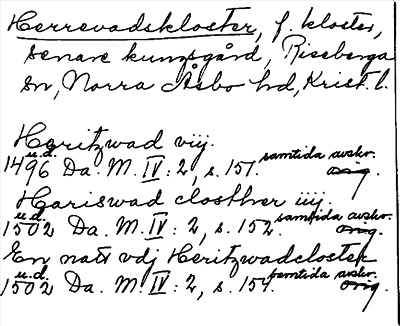 Herrevadskloster, f. kloster,
senare kungsgård, Riseberga
sn, Norra Åsbo hd, Krist. l.
Heritzwad vij.
u.d. samtida avskr.
1496 Da. M. IV: 2, s. 151. orig.
Hariswad closther iiij.
u.d. samtida avskr.
1502 Da. M. IV: 2, s. 152. orig.
En natt vdj Heritzwadcloster
u.d. samtida avskr.
1502 Da. M. IV: 2, s. 154. orig.